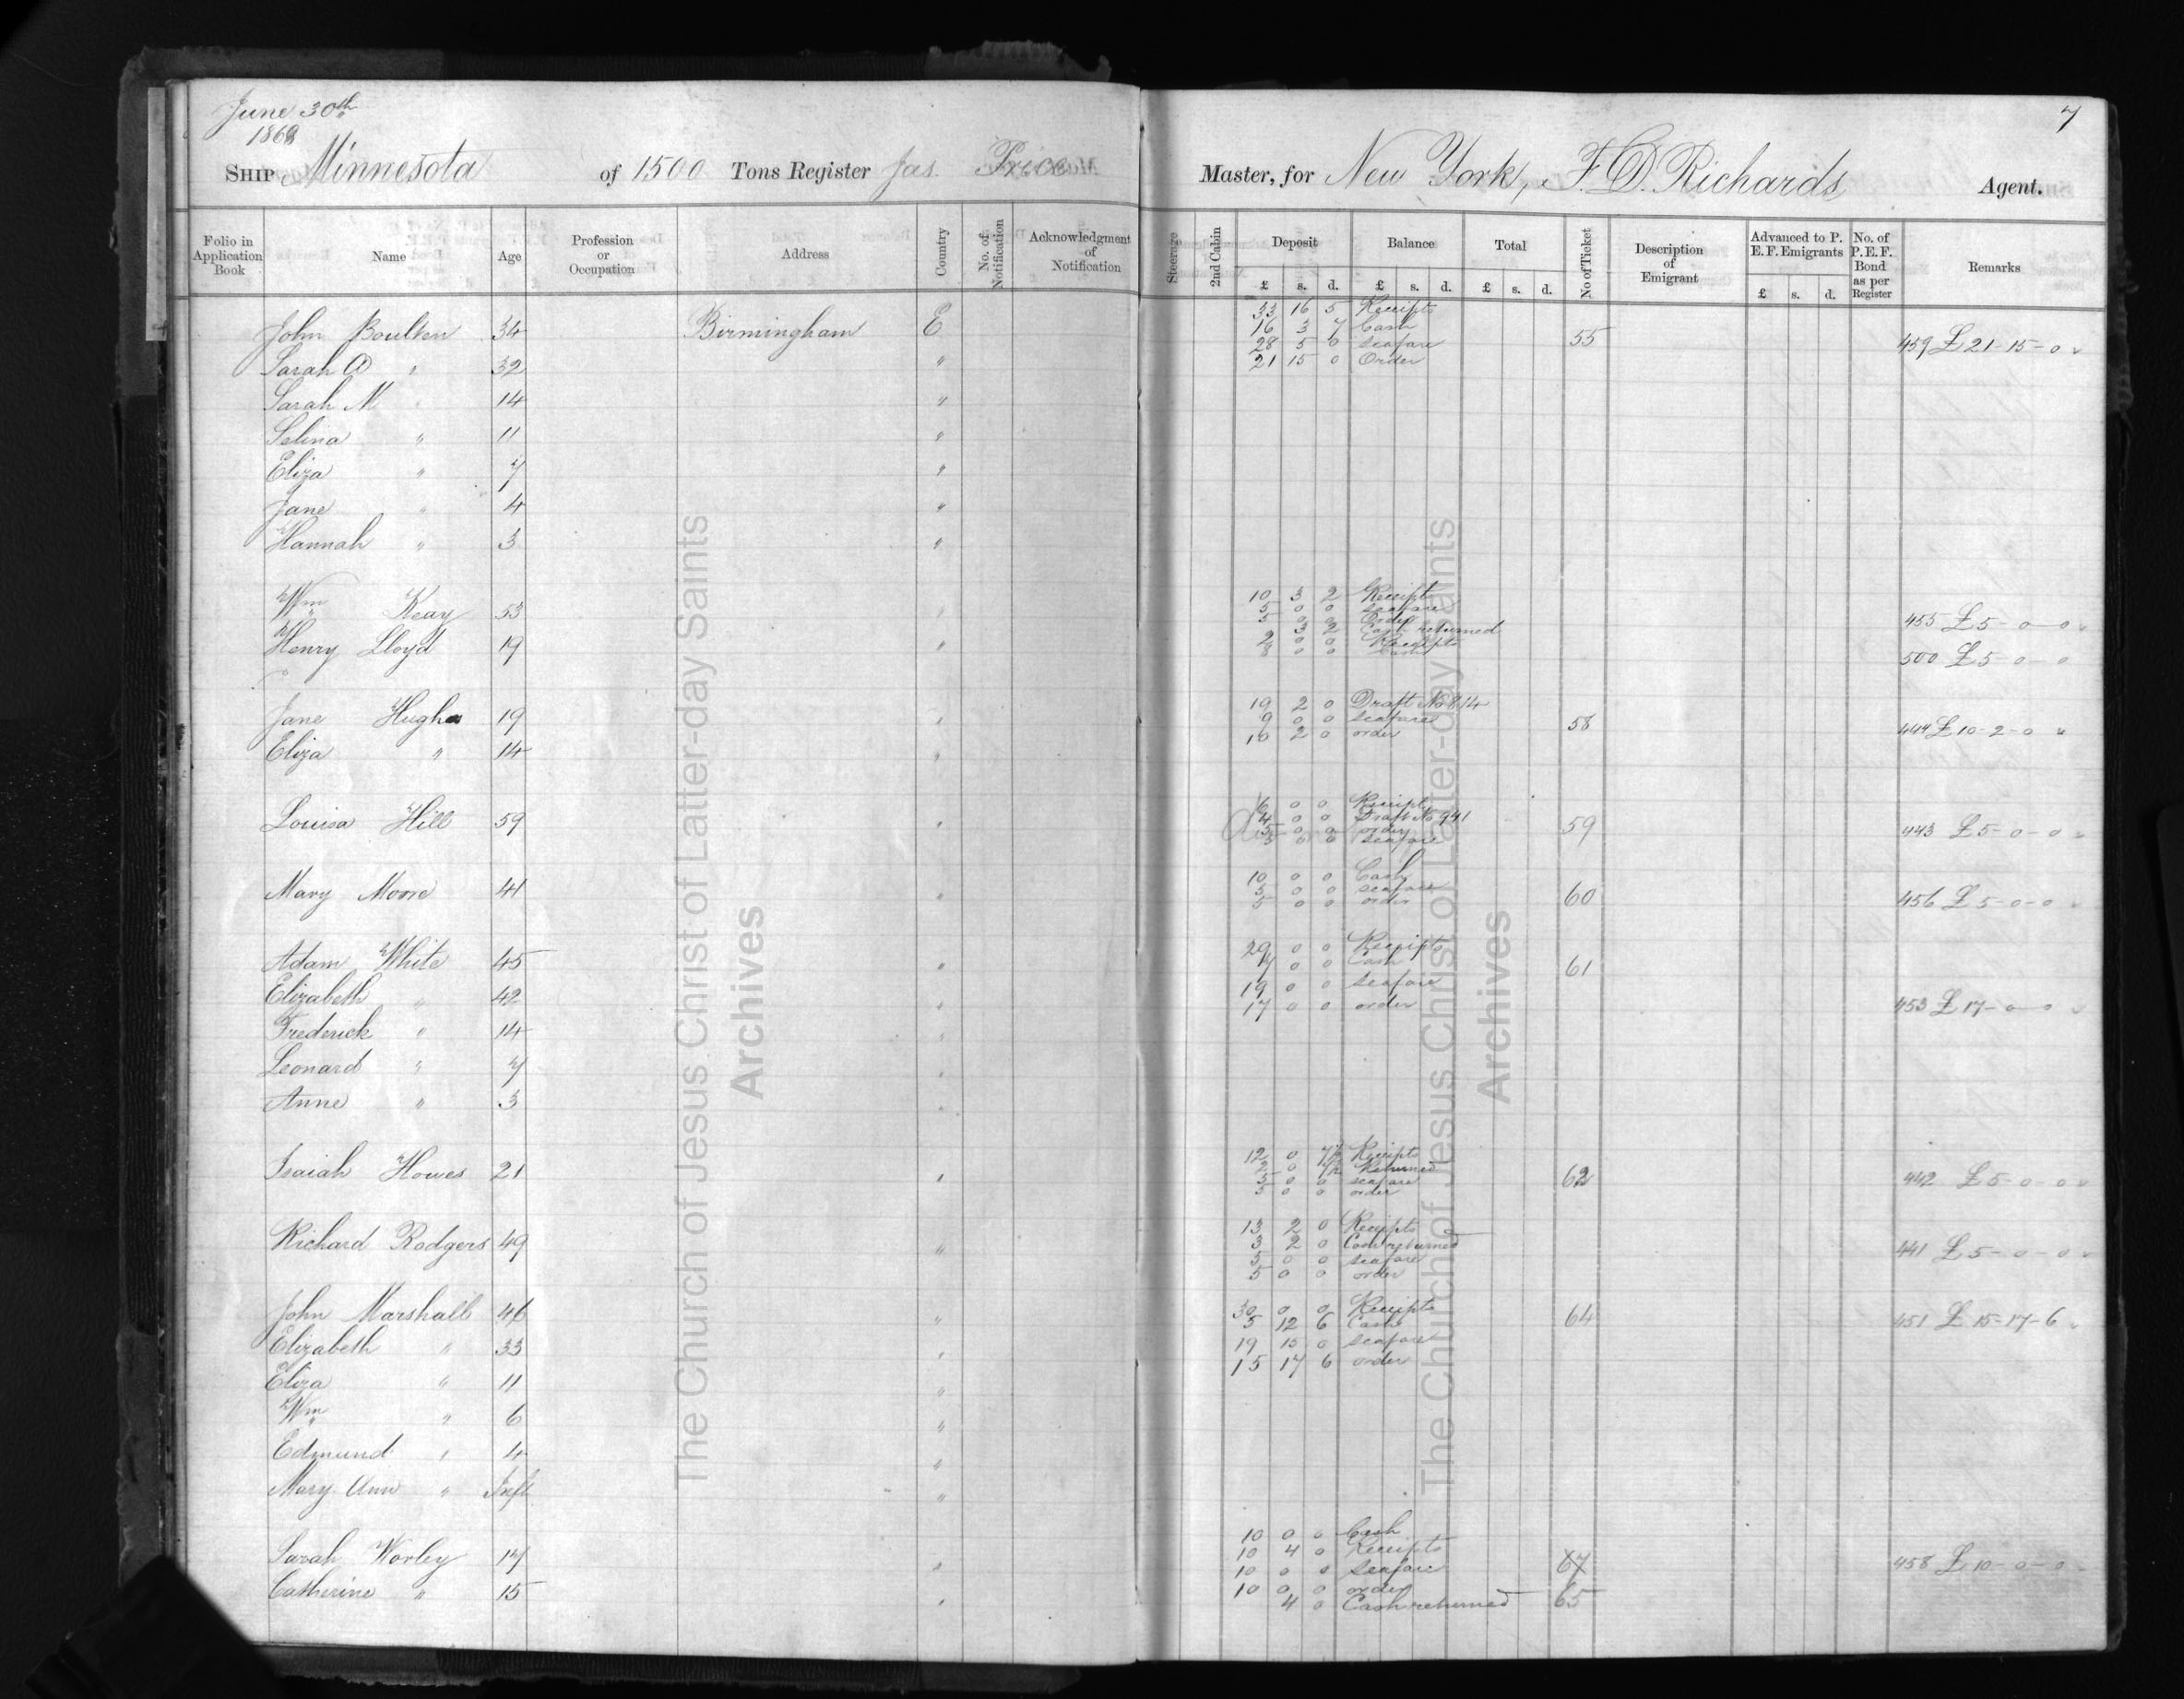 June 30th
1868
7
SHIP Minnesota of 1500 Tons Register Jas. Price Master, for New York, F. D. Richards Agent.
Folio in Application Book Name Age Profession or Occupation Address Country No. of Notification Acknowledgment of Notification Steerage 2nd Cabin Deposit Balance Total No of Ticket Description of Emigrant Advanced to P. E. F. Emigrants No. of P.E.F. Bond as per Register Remarks
£ s. d. £ s. d. £ s. d. £ s. d.
33 16 5 Receipts
John Boulton 34 Birmingham E 16 3 7 Cash 55 459 £21-15-0
28 5 0 seafare
Sarah A " 32 " 21 15 0 Order
Sarah M " 14 "
Selina " 11 "
Eliza " 7 "
Jane " 4 "
Hannah " 3 "
10 3 2 Receipt
Wm Keay 53 " 5 0 0 seafare 455 £5-0-0
5 0 0 Order
3 2 Cash returned
Henry Lloyd 19 " 2 0 0 Receipts 500 £5-0-0
8 0 0 Cash
19 2 0 Draft No 814
Jane Hughes 19 " 9 0 0 seafare 58 444 £10-2-0
10 2 0 order
Eliza " 14 "
6 0 0 Receipt
4 0 0 Draft No 941
Louisa Hill 59 " 5 0 0 order 59 443 £5-0-0
5 0 0 seafare
10 0 0 Cash
Mary Moore 41 " 5 0 0 seafare 60 456 £5-0-0
5 0 0 order
29 0 0 Receipts
Adam White 45 " 7 0 0 Cash 61
Elizabeth " 42 " 19 0 0 seafare
17 0 0 order 453 £17-0-0
Frederick " 14 "
Leonard " 7 "
Anne " 3 "
12 0 7½ Receipts
Isaiah Howes 21 " 2 0 7½ Returned 62 442 £5-0-0
5 0 0 seafare
5 0 0 order
13 2 0 Receipts
Richard Rodgers 49 " 3 2 0 Cash returned 441 £5-0-0
5 0 0 seafare
5 0 0 order
30 0 0 Receipts
John Marshall 46 " 5 12 6 Cash 64 451 £15-17-6
Elizabeth " 33 " 19 15 0 seafare
15 17 6 order
Eliza " 11 "
Wm " 6 "
Edmund " 4 "
Mary Ann " Inft "
10 0 0 Cash
10 4 0 Receipts
Sarah Worley 17 " 10 0 0 Seafare 458 £10-0-0
Catherine " 15 " 10 0 0 order
4 0 Cash returned 65
The Church of Jesus Christ of Latter-day Saints
Archives
The Church of Jesus Christ of Latter-day Saints
Archives